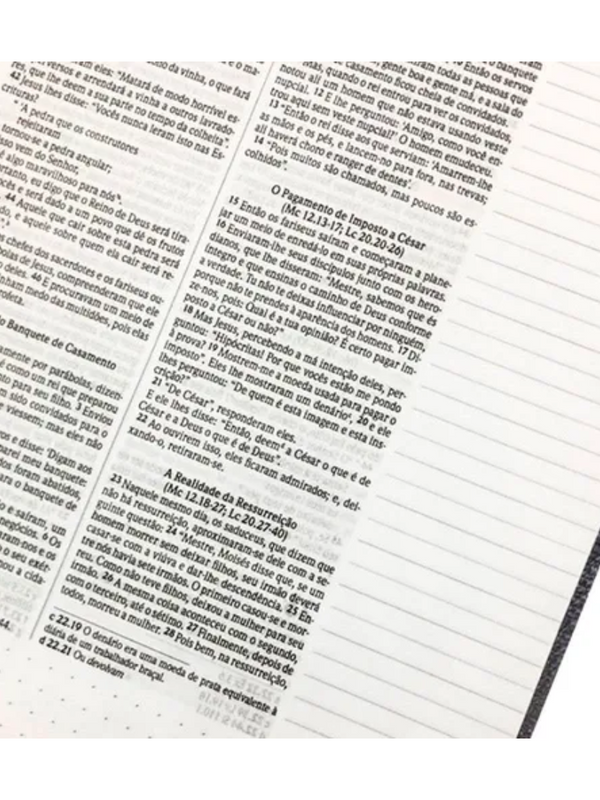 versos e arrendará a vinha a outros lavrado-
res, que lhe deem a sua parte no tempo da colheita".
42 Jesus lhes disse: "Vocês nunca leram isto nas Es-
crituras?
" 'A pedra que os construtores
rejeitaram
tornou-se a pedra angular;
isso vem do Senhor,
é algo maravilhoso para nós'
portanto, eu digo que o Reino de Deus será tira-
do de vocês e será dado a um povo que dê os frutos
44 Aquele que cair sobre esta pedra será
e aquele sobre quem ela cair será re-
chefes dos sacerdotes e os fariseus ou-
as de Jesus, compreenderam que ele
deles. 46 E procuravam um meio de
tinham medo das multidões, pois elas
profeta.
Banquete de Casamento
por parábolas, dizen-
é como um rei que preparou
para seu filho. 3 Enviou
sido convidados para o
viessem; mas eles não
e disse: 'Digam aos
meu banquete:
foram abatidos,
para o banquete de
e saíram, um
negócios. 6 Os
10 Então os servos
gente boa e gente má, e a sala do banquete
de casamento ficou cheia de convidados.
quando o rei entrou para ver os convidados,
notou ali um homem que não estava usando veste
nupcial. 12 E lhe perguntou: 'Amigo, como você en-
trou aqui sem veste nupcial?' O homem emudeceu.
13 "Então o rei disse aos que serviam: 'Amarrem-lhe
as mãos e os pés, e lancem-no para fora, nas trevas;
ali haverá choro e ranger de dentes'.
14 "Pois muitos são chamados, mas poucos são es-
colhidos".
O Pagamento de Imposto a César
(Mc 12.13-17; Lc 20.20-26)
15 Então os fariseus saíram e começaram a plane-
jar um meio de enredá-lo em suas próprias palavras.
16 Enviaram-lhe seus discípulos junto com os hero-
dianos, que lhe disseram: "Mestre, sabemos que és
íntegro e que ensinas o caminho de Deus conforme
a verdade. Tu não te deixas influenciar por ninguém,
porque não te prendes à aparência dos homens. 17 Di-
ze-nos, pois: Qual é a tua opinião? É certo pagar im-
posto a César ou não?"
18 Mas Jesus, percebendo a má intenção deles, per-
guntou: "Hipócritas! Por que vocês estão me pondo
à prova? 19 Mostrem-me a moeda usada para pagar o
imposto". Eles lhe mostraram um denário c, 20 e ele
lhes perguntou: "De quem é esta imagem e esta ins-
crição?"
21 "De César", responderam eles.
E ele lhes disse: "Então, deem d a César o que é de
César e a Deus o que é de Deus".
22 Ao ouvirem isso, eles ficaram admirados; e, dei-
xando-o, retiraram-se.
A Realidade da Ressurreição
(Mc 12.18-27; Lc 20.27-40)
23 Naquele mesmo dia, os saduceus, que dizem que
não há ressurreição, aproximaram-se dele com a se-
guinte questão: 24 "Mestre, Moisés disse que, se um
homem morrer sem deixar filhos, seu irmão deverá
casar-se com a viúva e dar-lhe descendência. 25 En-
tre nós havia sete irmãos. O primeiro casou-se e mor-
reu. Como não teve filhos, deixou a mulher para seu
irmão. 26 A mesma coisa aconteceu com o segundo,
com o terceiro, até o sétimo. 27 Finalmente, depois de
todos, morreu a mulher. 28 Pois bem, na ressurreição,
c 22.19 O denário era uma moeda de prata equivalente à
diária de um trabalhador braçal.
d 22.21 Ou devolvam